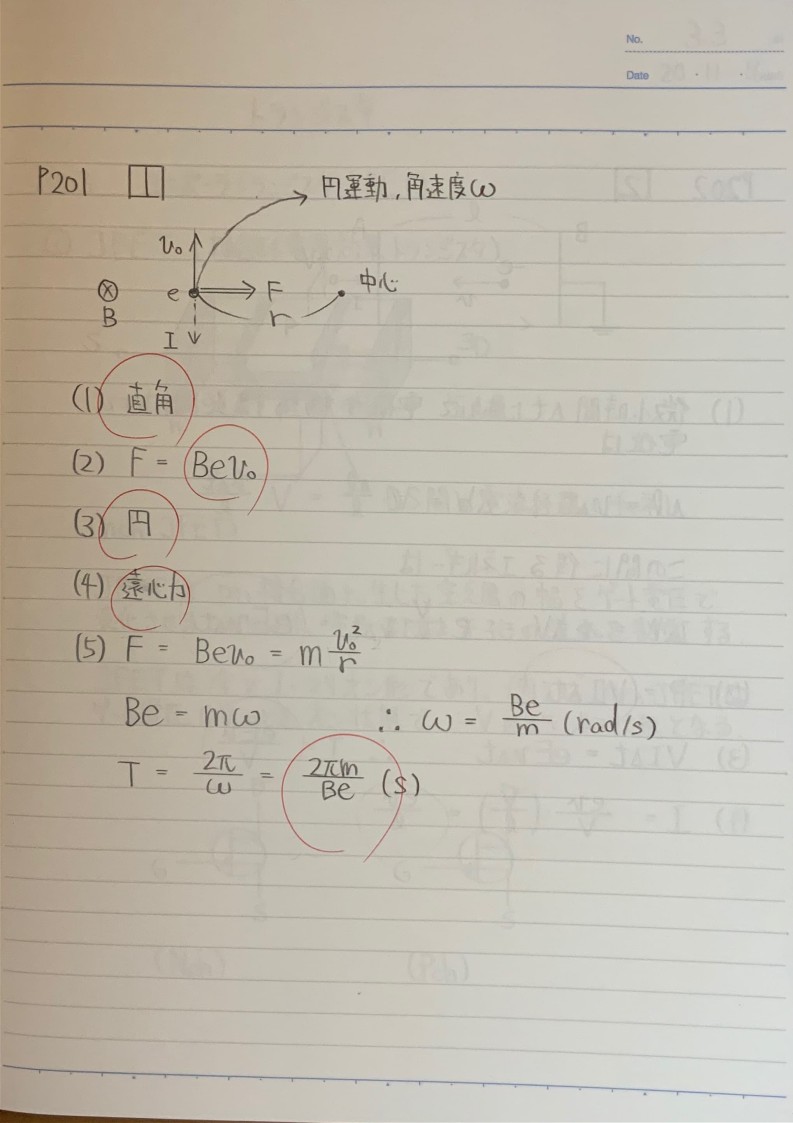 No.
Date
P201 [1]
円運動,角速度ω
v₀
e F 中心
B r
I
(1) 直角
(2) F = Bev₀
(3) 円
(4) 遠心力
(5) F = Bev₀ = m v₀²/r
Be = mω ∴ ω = Be/m (rad/s)
T = 2π/ω = 2πm/Be (s)